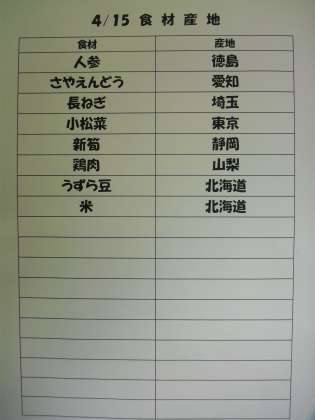 4/15 食材産地
食材 産地
人参 徳島
さやえんどう 愛知
長ねぎ 埼玉
小松菜 東京
新筍 静岡
鶏肉 山梨
うずら豆 北海道
米 北海道